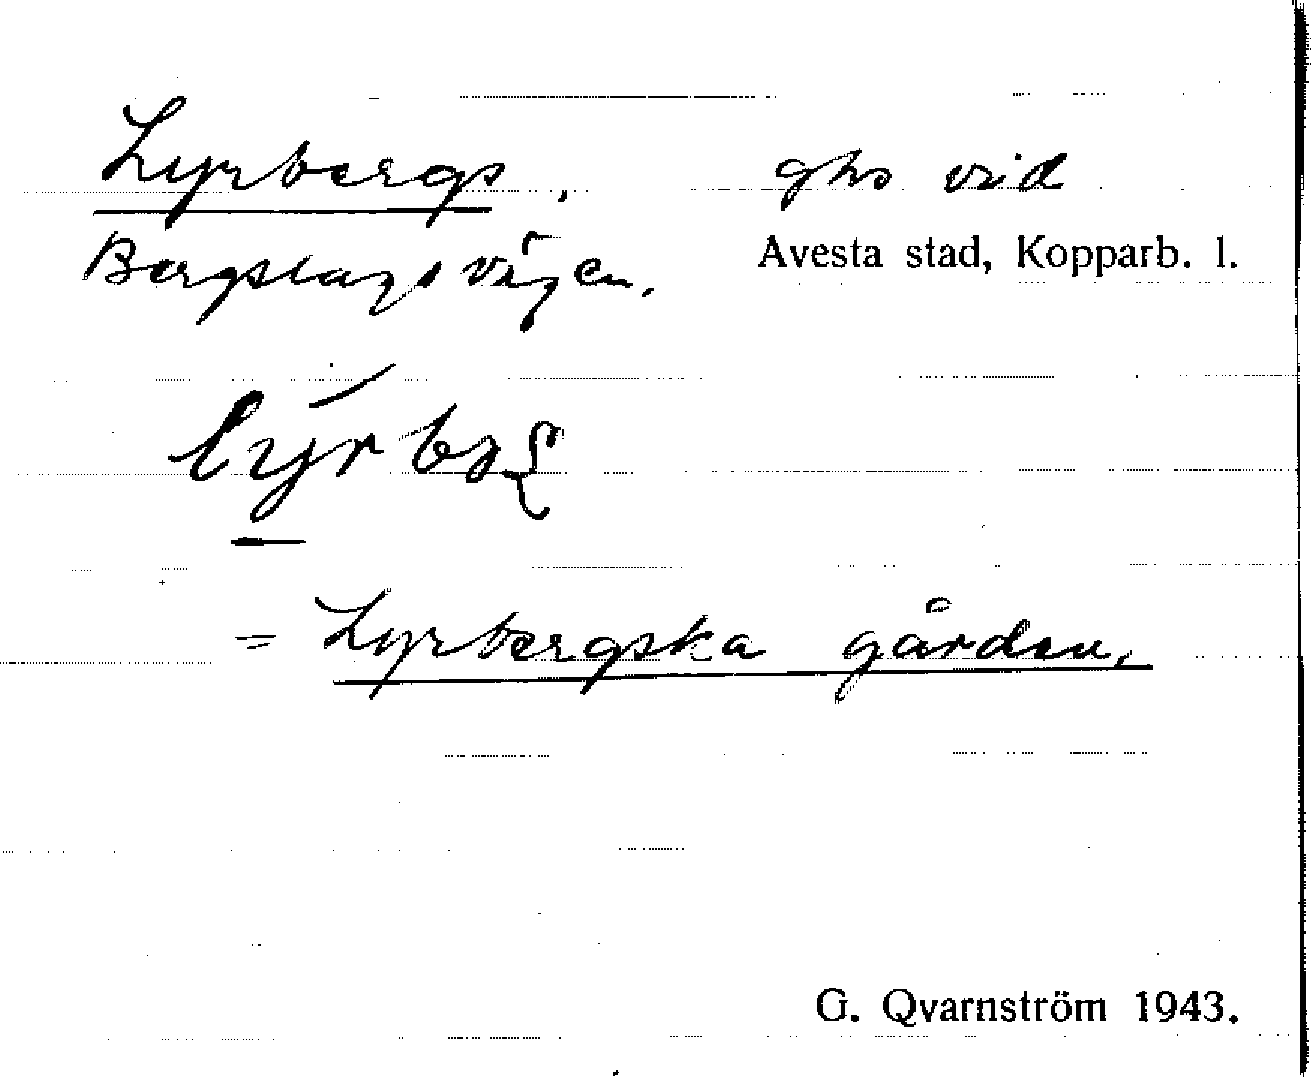 Lyrbergs, ghs vid
Bergslagsvägen. Avesta stad, Kopparb. l.
= Lyrbergska gården,
G. Qvarnström 1943.